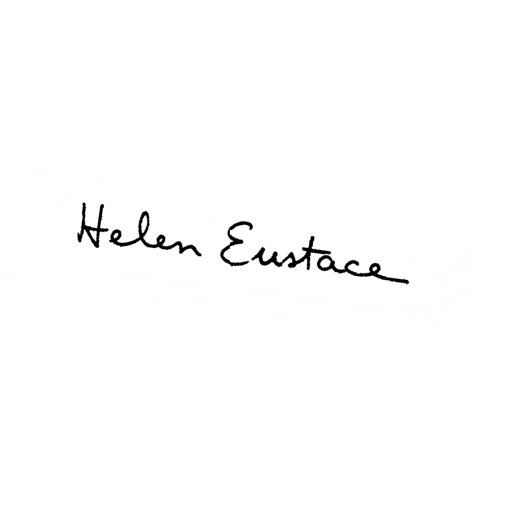 Helen Eustace